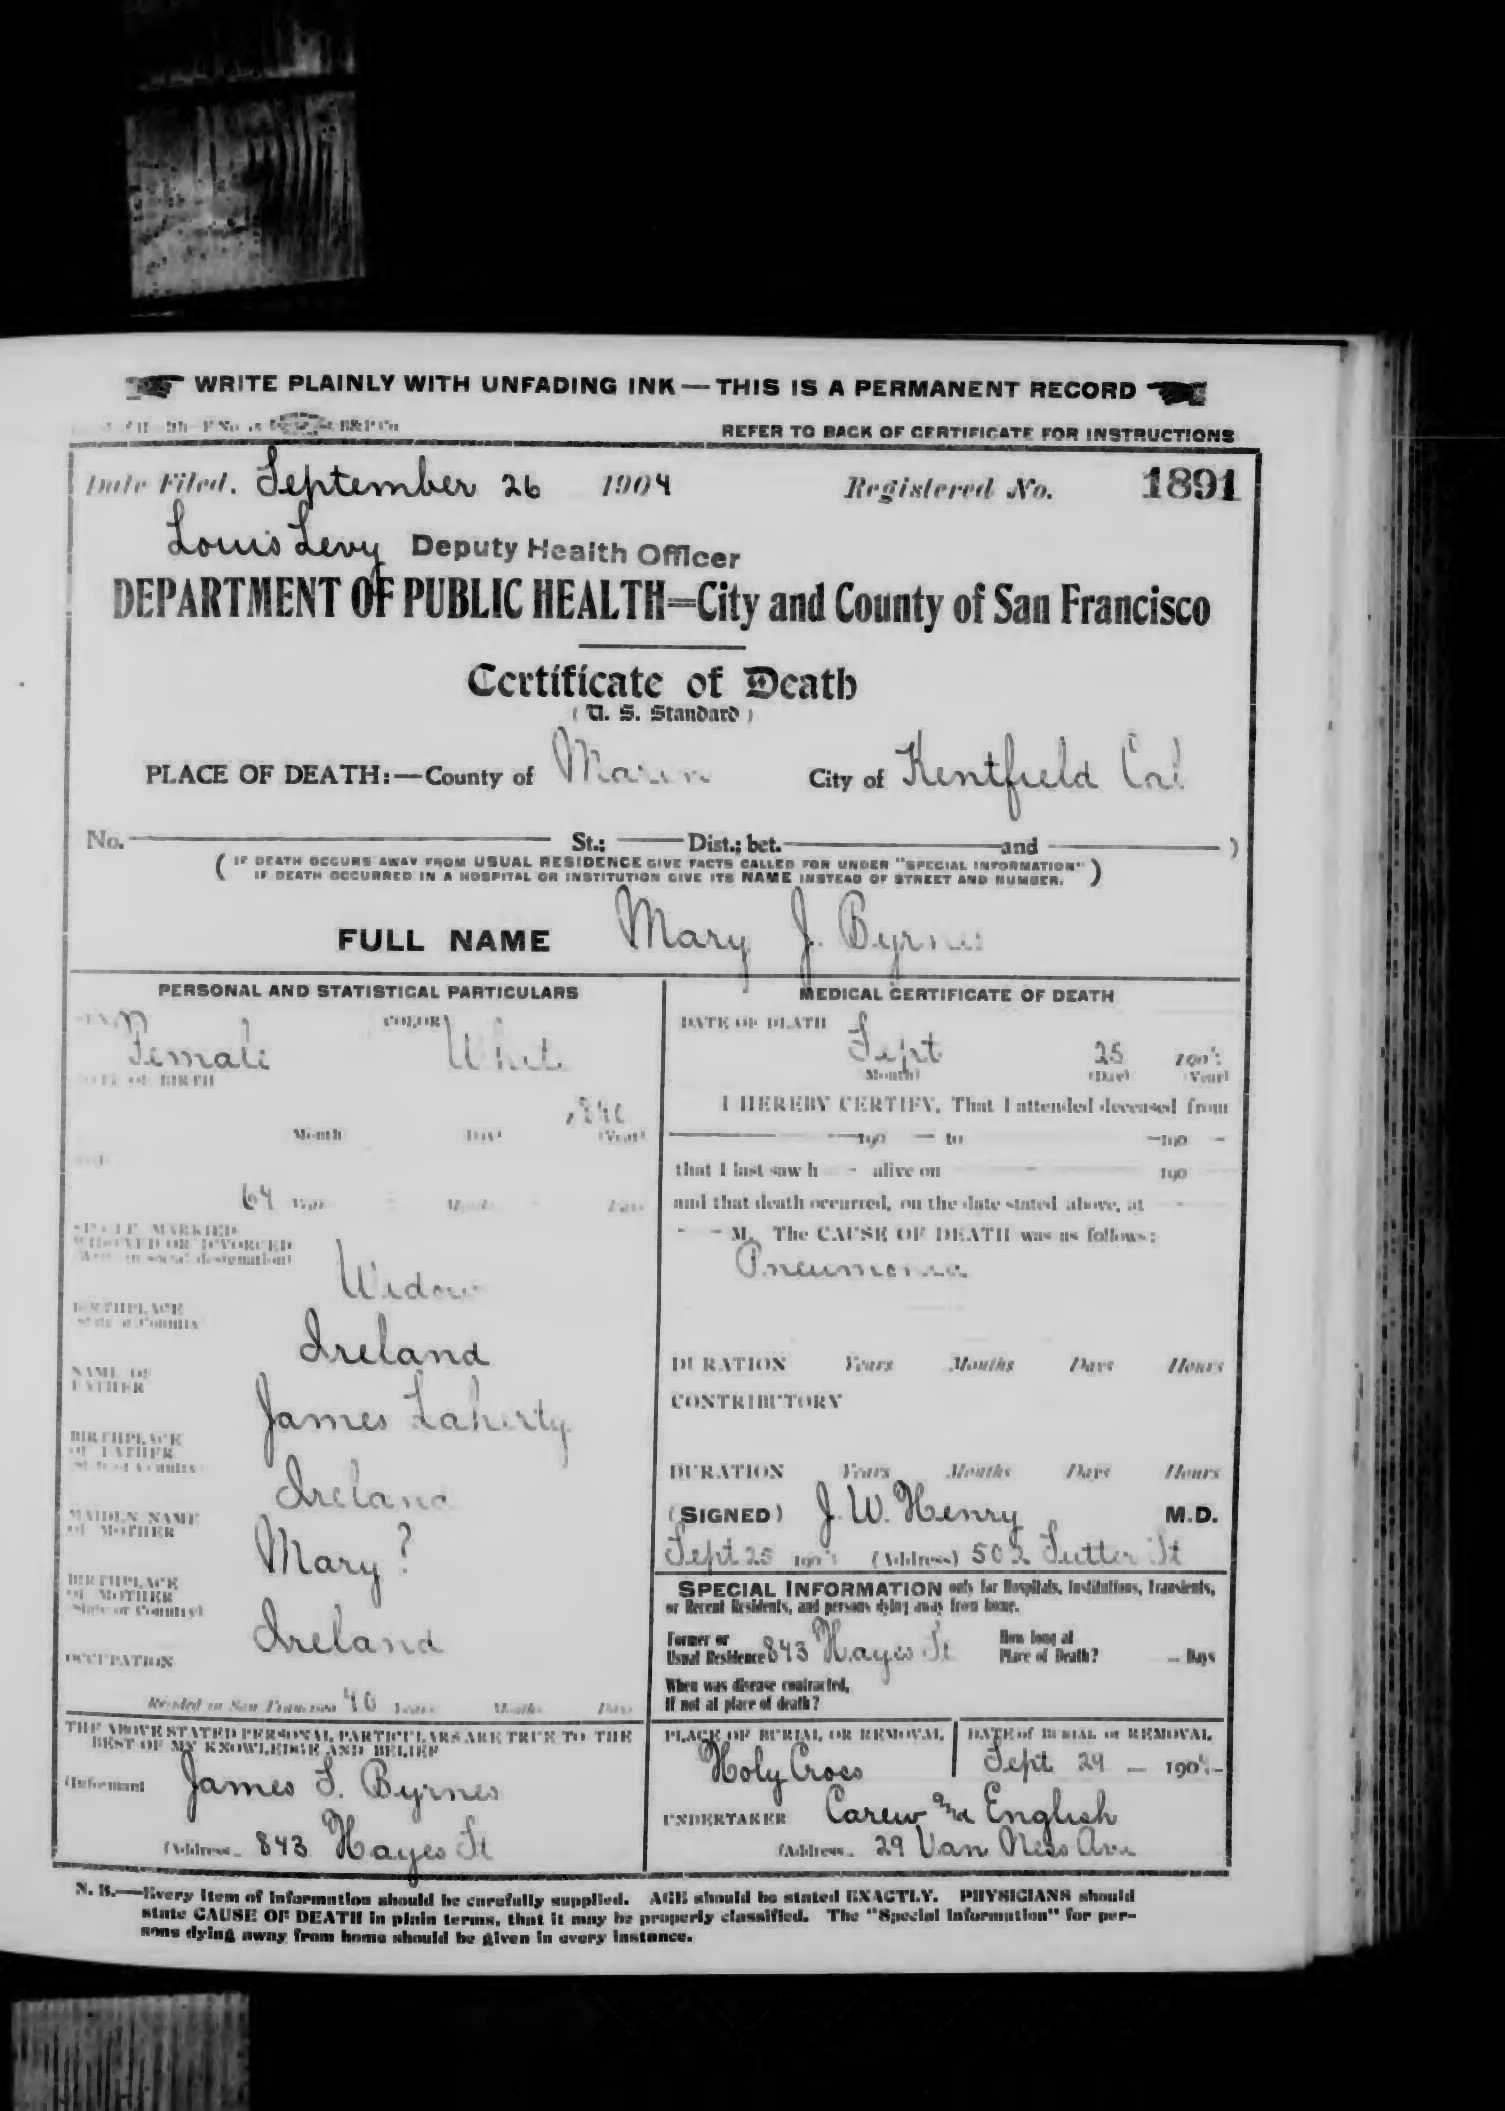 WRITE PLAINLY WITH UNFADING INK—THIS IS A PERMANENT RECORD
REFER TO BACK OF CERTIFICATE FOR INSTRUCTIONS
Date Filed, September 26 1904 Registered No. 1891
Louis Levy Deputy Health Officer
DEPARTMENT OF PUBLIC HEALTH=City and County of San Francisco
Certificate of Death
(U. S. Standard)
PLACE OF DEATH:—County of Marin City of Kentfield Cal
No. St.; Dist.; bet. and )
(IF DEATH OCCURS AWAY FROM USUAL RESIDENCE GIVE FACTS CALLED FOR UNDER "SPECIAL INFORMATION"
IF DEATH OCCURRED IN A HOSPITAL OR INSTITUTION GIVE ITS NAME INSTEAD OF STREET AND NUMBER.)
FULL NAME Mary J. Byrnes
PERSONAL AND STATISTICAL PARTICULARS
SEX Female COLOR White
DATE OF BIRTH
1840
Month Day (Year)
64 Years Months Days
SINGLE, MARRIED
WIDOWED OR DIVORCED
(Write in social designation)
Widow
BIRTHPLACE
State or Country
Ireland
NAME OF
FATHER
James Laherty
BIRTHPLACE
OF FATHER
State or Country
Ireland
MAIDEN NAME
OF MOTHER
Mary?
BIRTHPLACE
OF MOTHER
(State or Country)
Ireland
OCCUPATION
Resided in San Francisco 40 Years Months Days
THE ABOVE STATED PERSONAL PARTICULARS ARE TRUE TO THE
BEST OF MY KNOWLEDGE AND BELIEF
(Informant James F. Byrnes
(Address 843 Hayes St
MEDICAL CERTIFICATE OF DEATH
DATE OF DEATH
Sept 25 1904
(Month) (Day) (Year)
I HEREBY CERTIFY, That I attended deceased from
190 to 190
that I last saw h alive on 190
and that death occurred, on the date stated above, at
M. The CAUSE OF DEATH was as follows:
Pneumonia
DURATION Years Months Days Hours
CONTRIBUTORY
DURATION Years Months Days Hours
(SIGNED) J. W. Henry M.D.
Sept 25 1904 (Address) 502 Sutter St
SPECIAL INFORMATION only for Hospitals, Institutions, Transients,
or Recent Residents, and persons dying away from home.
Former or
Usual Residence 843 Hayes St
How long at
Place of Death? Days
When was disease contracted,
If not at place of death?
PLACE OF BURIAL OR REMOVAL
Holy Cross
DATE of BURIAL or REMOVAL
Sept 29 1904
UNDERTAKER Carew and English
(Address 29 Van Ness Ave
N. B.—Every item of information should be carefully supplied. AGE should be stated EXACTLY. PHYSICIANS should
state CAUSE OF DEATH in plain terms, that it may be properly classified. The "Special Information" for per-
sons dying away from home should be given in every instance.